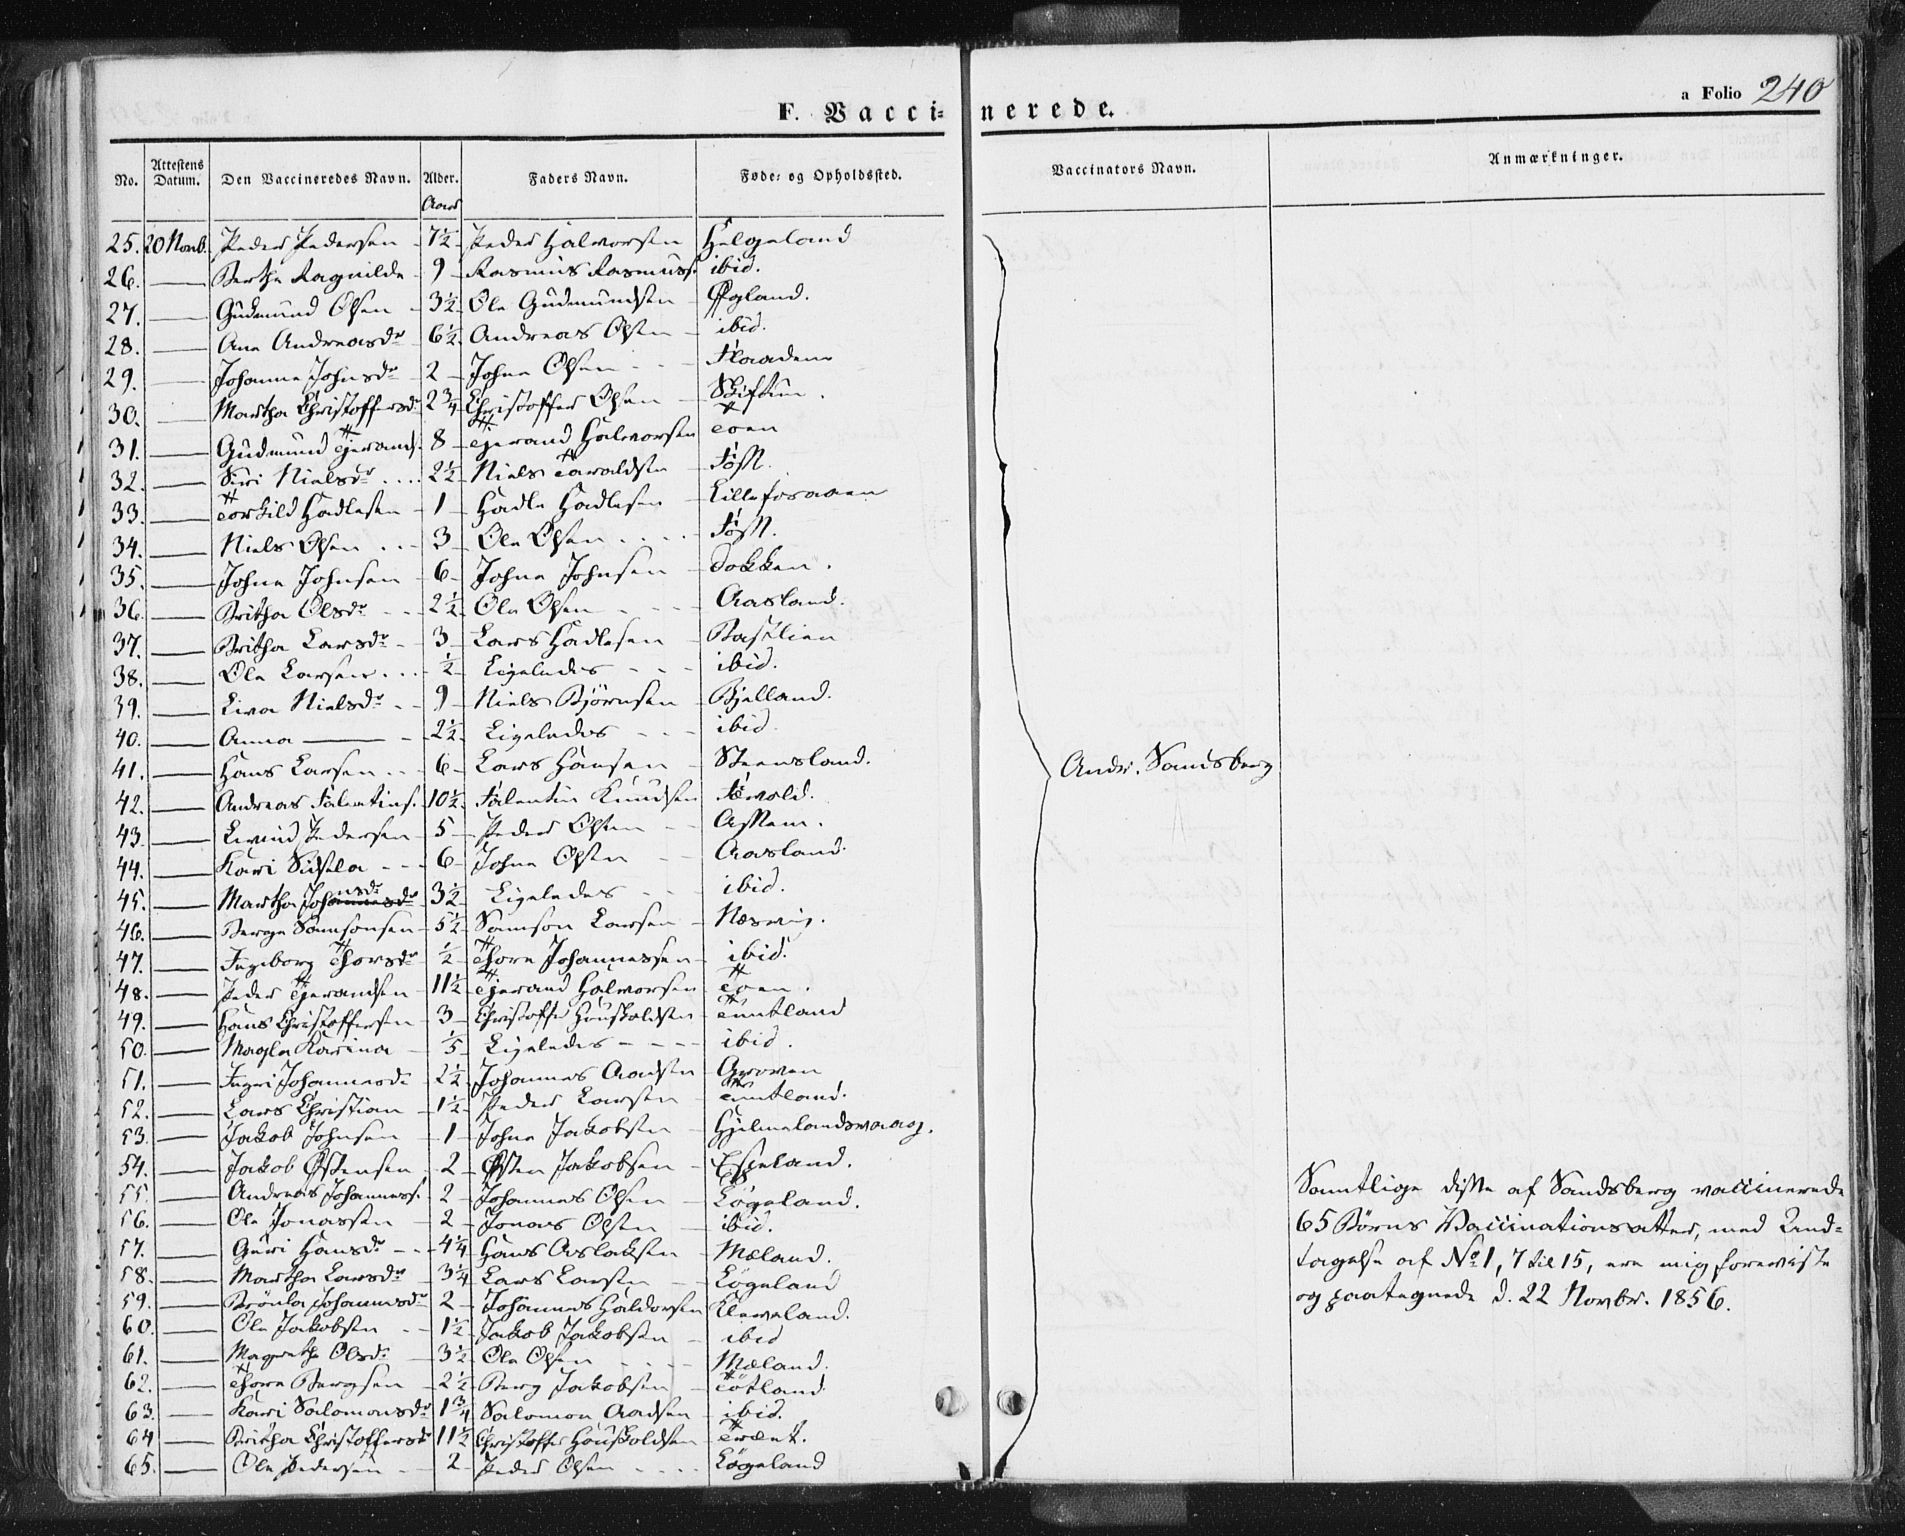 F. Vaccinerede.
a Folio 240
No. Attestens Datum. Den Vaccineredes Navn. Alder. Faders Navn. Føde- og Opholdssted. Vaccinators Navn. Anmærkninger.
Aar
25. 20 Novb. Peder Pedersen 7½ Peder Halvorsen Helgeland
26. Berthe Ragnilde 9 Rasmus Rasmuss. ibid.
27. Gudmund Olsen 3½ Ole Gudmundsen Øgland.
28. Ane Andreasdr 6½ Andreas Olsen ibid.
29. Johanne Johnsdr 2 Johne Olsen
30. Martha Christoffersdr 2¾ Christoffer Olsen Skiftun.
31. Gudmund Tjerands. 8 Tjerand Halvorsen Toen
32. Siri Nielsdr 2½ Niels Taraldsen
33. Torkild Hadlesen 1 Hadle Hadlesen Lillefosaaen
34. Niels Olsen 3 Ole Olsen
35. Johne Johnsen 6 Johne Johnsen Dokken.
36. Britha Olsdr 2½ Ole Olsen Aasland.
37. Britha Larsdr 3 Lars Hadlesen Bastlien
38. Ole Larsen ½ Ligeledes ibid.
39. Liva Nielsdr 9 Niels Björnsen Bjelland.
40. Anna 2½ Ligeledes ibid.
41. Hans Larsen 6 Lars Hansen Steensland.
42. Andreas Falentins. 10½ Falentin Knudsen Fævold.
43. Eivind Pedersen 5 Peder Olsen
44. Kari Sidsela 6 Johne Olsen Aasland.
45. Martha Johnsdr 3½ Ligeledes ibid.
46. Berge Samsonsen 5½ Samson Larsen Næsvig.
47. Ingeborg Thorsdr ½ Thore Johannessen ibid.
48. Peder Tjerandsen 11½ Tjerand Halvorsen Toen.
49. Hans Christoffersen 3 Christoffer Houskoldsen Tuntland
50. Magla Karina ⅕ Ligeledes ibid.
51. Ingri Johannesdr 2½ Johannes Aadsen Groven
52. Lars Christian 1½ Peder Larsen Tuntland.
53. Jakob Johnsen 1 Johne Jakobsen Hjelmelandsvaag.
54. Jakob Østensen 2 Østen Jakobsen Espeland.
55. Andreas Johanness. 2 Johannes Olsen Løgeland.
56. Ole Jonassen 2 Jonas Olsen ibid.
57. Guri Hansdr 4¼ Hans Aslaksen Mæland.
58. Martha Larsdr 3¼ Lars Larsen Løgeland
59. Brönla Johannesdr 2 Johannes Haldorsen Kleveland.
60. Ole Jakobsen 1½ Jakob Jakobsen ibid
61. Magrethe Olsdr 3½ Ole Olsen Mæland.
62. Thore Bergsen 2½ Berg Jakobsen Tøtland.
63. Kari Salomonsdr 1¾ Salomon Aadsen ibid.
64 Britha Christoffersdr 11½ Christoffer Houskoldsen Trænt.
65. Ole Pedersen 2 Peder Olsen Løgeland
Andr. Sandsberg
Samtlige disse af Sandsberg vaccinerede
65 Börns Vaccinationsatter, med Und-
tagelse af No 1, 7 til 15, ere mig foreviste
og paategnede d. 22 Novbr. 1856.